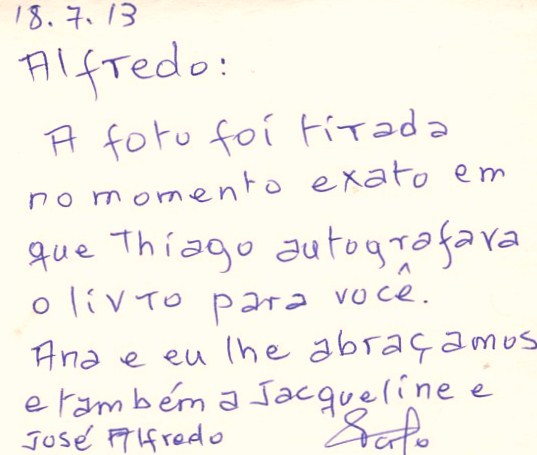 18.7.13
Alfredo:
A foto foi tirada
no momento exato em
que Thiago autografava
o livro para você.
Ana e eu lhe abraçamos
e também a Jacqueline e
José Alfredo